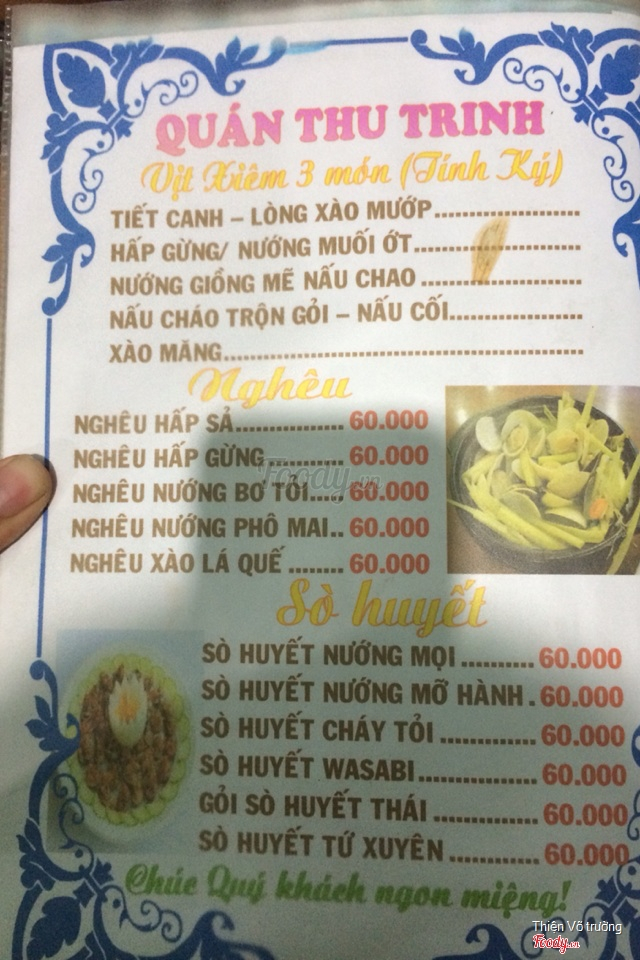 QUÁN THU TRINH
Vịt Xiêm 3 món (Tính Ký)
TIẾT CANH – LÒNG XÀO MƯỚP....................
HẤP GỪNG/ NƯỚNG MUỐI ỚT.......................
NƯỚNG GIỒNG MẼ NẤU CHAO ......................
NẤU CHÁO TRỘN GỎI – NẤU CỐI..................
XÀO MĂNG..................................................
Nghêu
NGHÊU HẤP SẢ................ 60.000
NGHÊU HẤP GỪNG............ 60.000
NGHÊU NƯỚNG BƠ TỎI..... 60.000
NGHÊU NƯỚNG PHÔ MAI.. 60.000
NGHÊU XÀO LÁ QUẾ ........ 60.000
Foody.vn
Sò huyết
SÒ HUYẾT NƯỚNG MỌI ........... 60.000
SÒ HUYẾT NƯỚNG MỠ HÀNH . 60.000
SÒ HUYẾT CHÁY TỎI .............. 60.000
SÒ HUYẾT WASABI................. 60.000
GỎI SÒ HUYẾT THÁI ............... 60.000
SÒ HUYẾT TỨ XUYÊN ............. 60.000
Chúc Quý khách ngon miệng!
Thiện Võ trường
Foody.vn